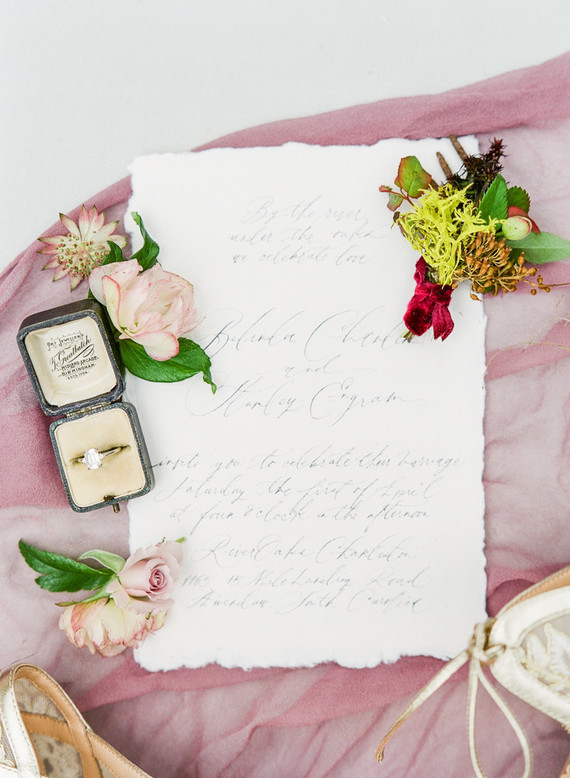 By the river
under the oaks
we celebrate love
Belinda
and
Stanley
invite you to celebrate their marriage
Saturday the first of April
at four o'clock in the afternoon
RiverOaks Charleston
Landing Road
Awendaw, South Carolina
The Jewellers
BIRMINGHAM